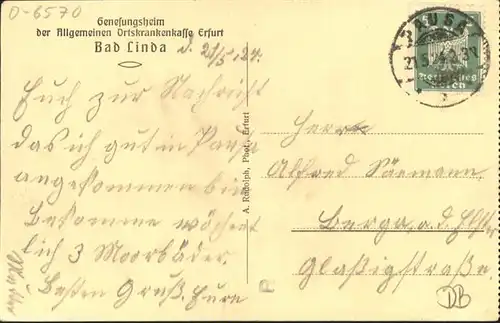 D-6570
Genesungsheim
der Allgemeinen Ortskrankenkasse Erfurt
Bad Linda d. 21/5.24.
Euch zur Nachricht
das ich gut in Pausa
angekommen bin
Bekomme wöchent
lich 3 Moorbäder.
Besten Gruß. Eure
Mutter
A. Rudolph, Phot., Erfurt
PAUSA
21.5.24
Deutsches Reich
Herrn
Alfred Säemann
Berga a.d. Elster
Glaßigstraße.
DB